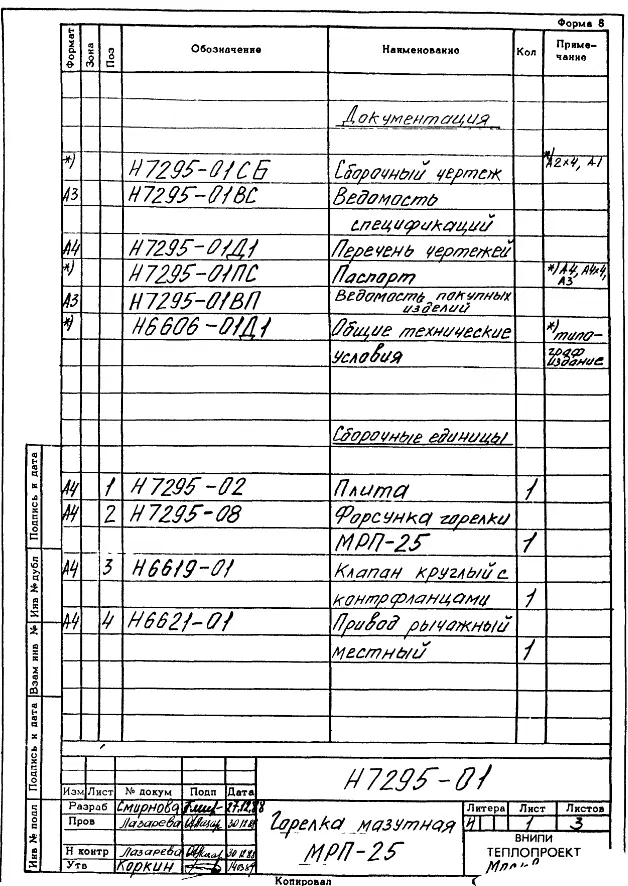 Форма 8
Формат Зона Поз Обозначение Наименование Кол Примечание
Документация
*) Н7295-01СБ Сборочный чертеж *) А2х4, А1
А3 Н7295-01ВС Ведомость
спецификаций
А4 Н7295-01Д1 Перечень чертежей
*) Н7295-01ПС Паспорт *) А4, А4х4,
А3
А3 Н7295-01ВП Ведомость покупных
изделий
*) Н6606-01Д1 Общие технические *) типо-
условия граф
издание
Сборочные единицы
А4 1 Н7295-02 Плита 1
А4 2 Н7295-08 Форсунка горелки
МРП-25 1
А4 3 Н6619-01 Клапан круглый с
контрфланцами 1
А4 4 Н6621-01 Привод рычажный
местный 1
Инв № подл Подпись и дата Взам инв № Инв № дубл Подпись и дата
Н7295-01
Изм Лист № докум Подп Дата
Разраб Смирнова 27.12.88
Пров Лазарева
Н контр Лазарева
Утв Коркин
Горелка мазутная
МРП-25
Литера Лист Листов
И 1 3
ВНИПИ
ТЕПЛОПРОЕКТ
Копировал